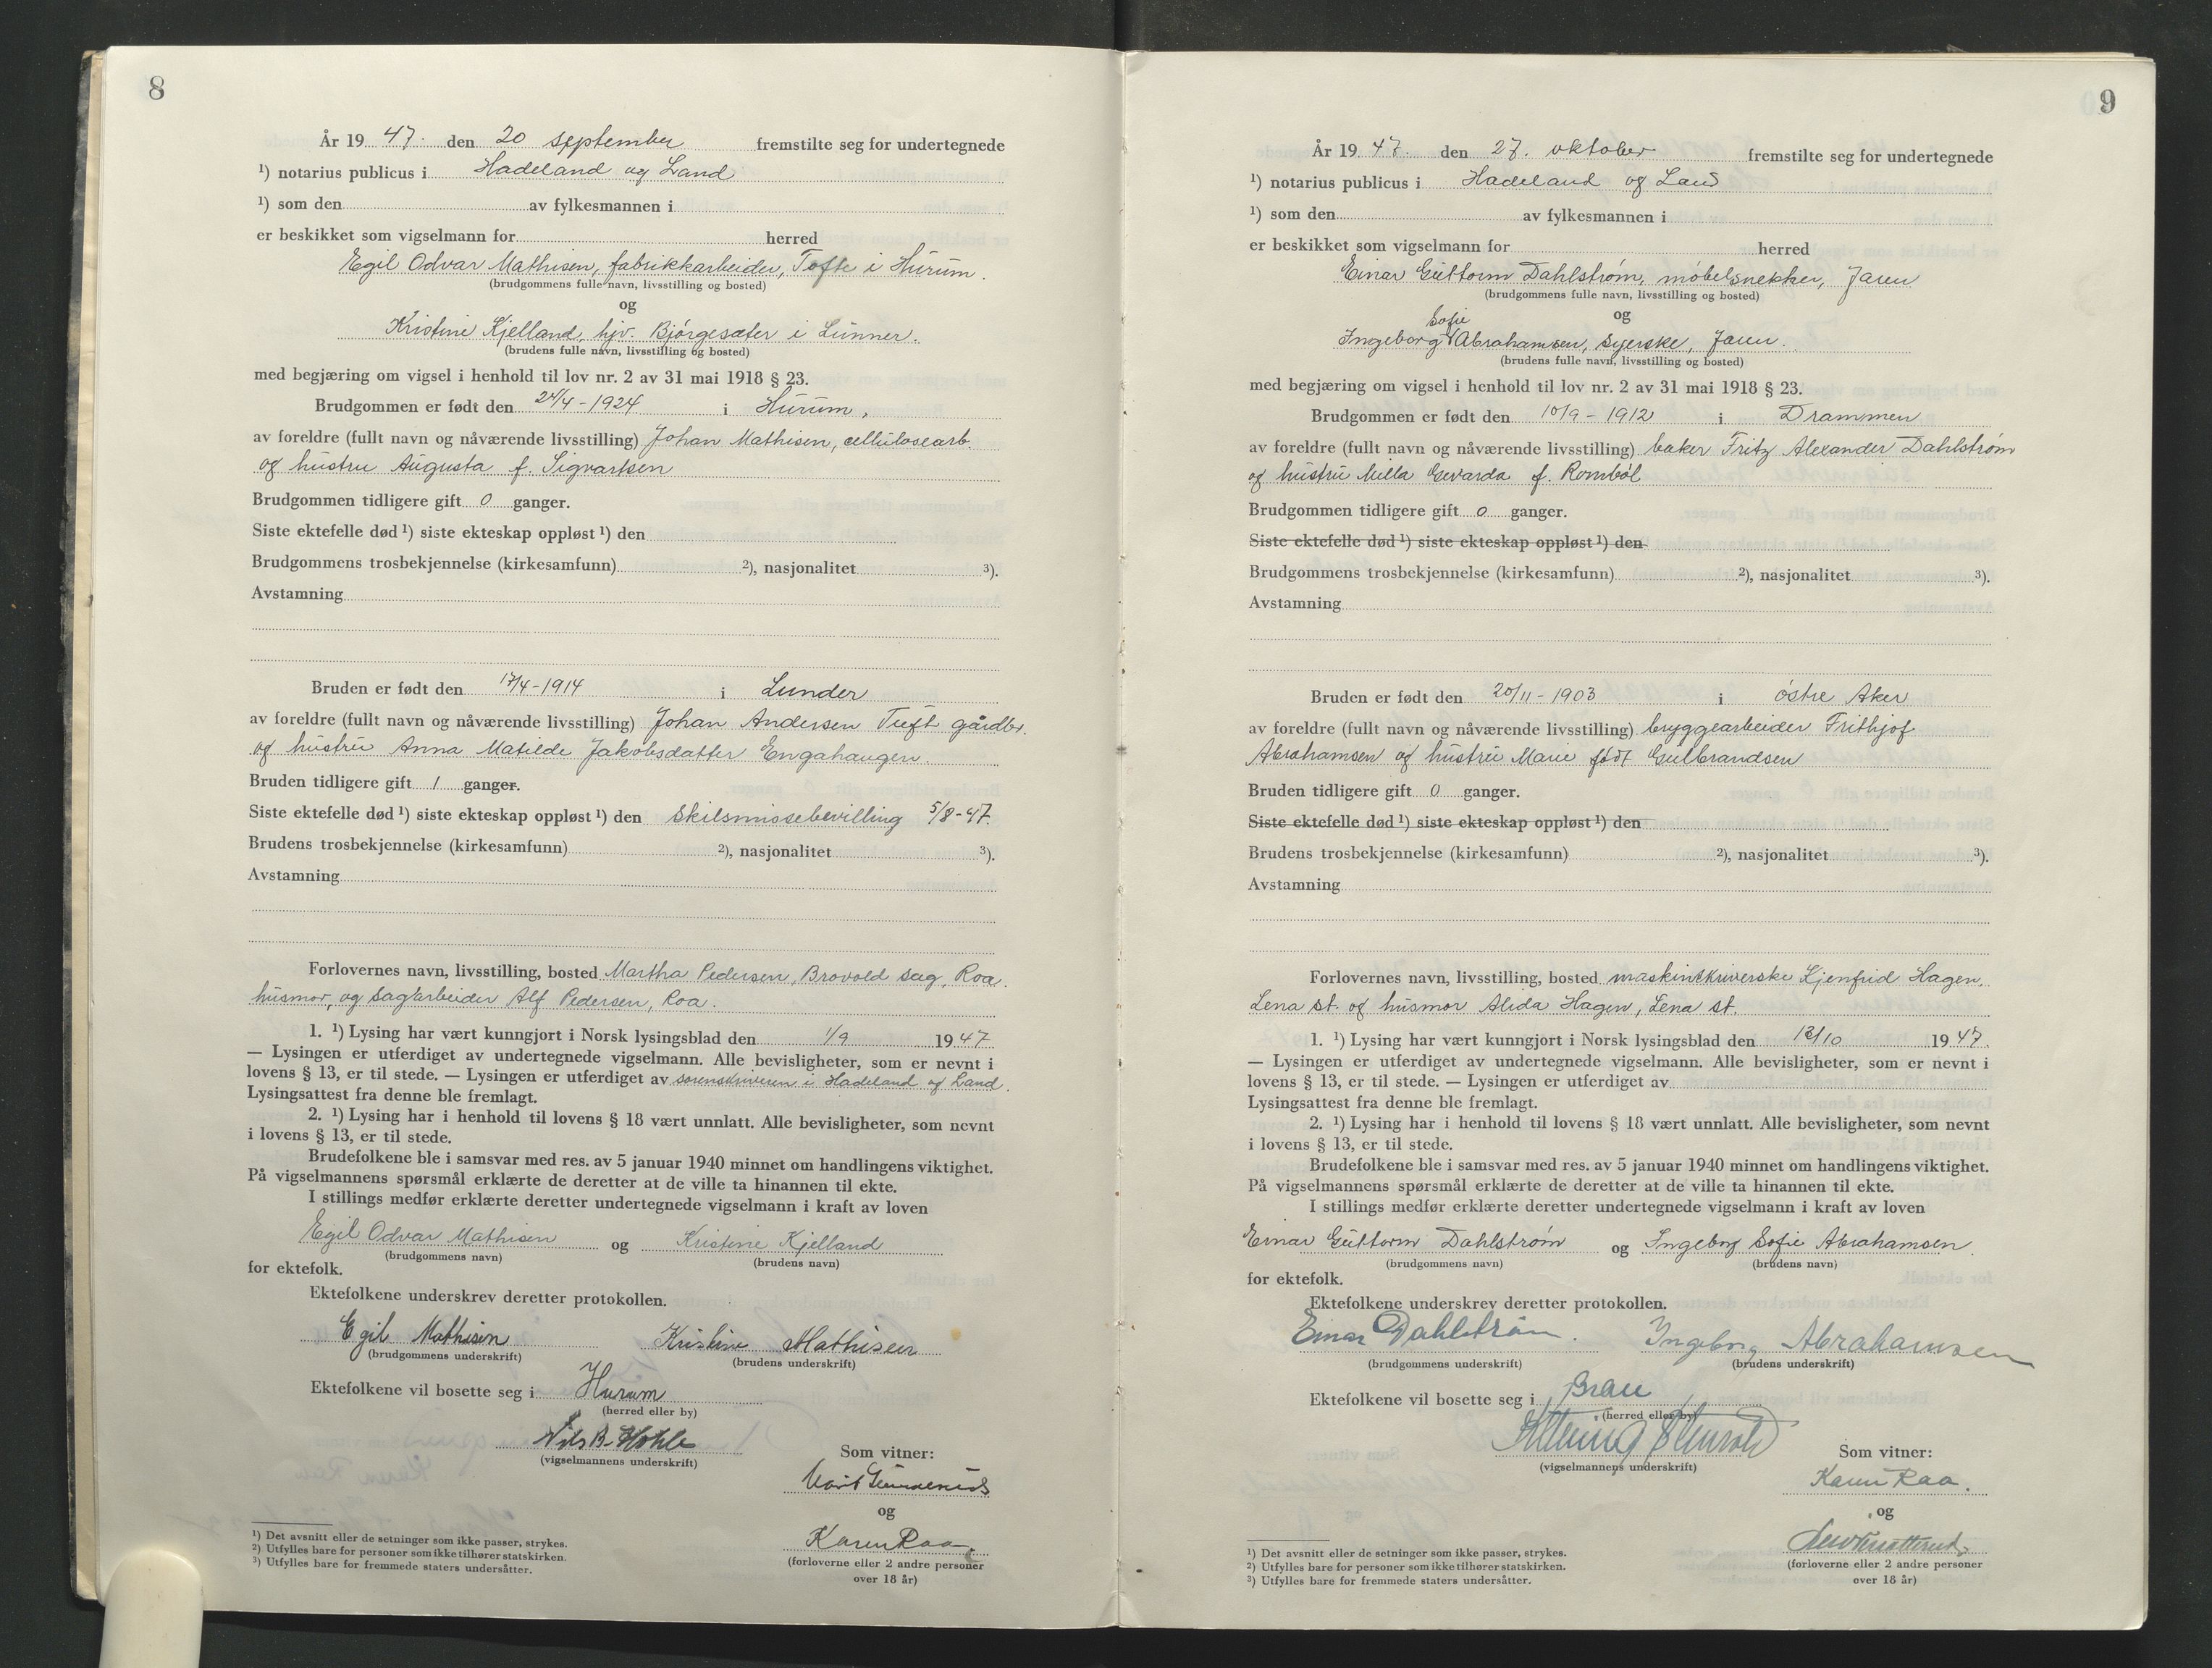 8
År 19 47. den 20 september fremstilte seg for undertegnede
¹) notarius publicus i Hadeland og Land
¹) som den av fylkesmannen i
er beskikket som vigselmann for herred
Egil Odvar Mathisen, fabrikkarbeider, Tofte i Hurum.
(brudgommens fulle navn, livsstilling og bosted)
og
Kristine Kjelland, hjv. Bjørgesæter i Lunner.
(brudens fulle navn, livsstilling og bosted)
med begjæring om vigsel i henhold til lov nr. 2 av 31 mai 1918 § 23.
Brudgommen er født den 24/4 - 1924 i Hurum,
av foreldre (fullt navn og nåværende livsstilling) Johan Mathisen, cellulosearb.
og hustru Augusta f. Sigvartsen
Brudgommen tidligere gift 0 ganger.
Siste ektefelle død ¹) siste ekteskap oppløst ¹) den
Brudgommens trosbekjennelse (kirkesamfunn) ²), nasjonalitet ³).
Avstamning
Bruden er født den 17/4 - 1914 i Lunder
av foreldre (fullt navn og nåværende livsstilling) Johan Andersen Tuft gårdbr.
og hustru Anna Matilde Jakobsdatter Engahaugen.
Bruden tidligere gift 1 ganger.
Siste ektefelle død ¹) siste ekteskap oppløst ¹) den Skilsmissebevilling 5/8-47.
Brudens trosbekjennelse (kirkesamfunn) ²), nasjonalitet ³).
Avstamning
Forlovernes navn, livsstilling, bosted Martha Pedersen, Brovold sag, Roa.
husmor, og sagarbeider Alf Pedersen, Roa.
1. ¹) Lysing har vært kunngjort i Norsk lysingsblad den 1/9 19 47
— Lysingen er utferdiget av undertegnede vigselmann. Alle bevisligheter, som er nevnt i
lovens § 13, er til stede. — Lysingen er utferdiget av sorenskriveren i Hadeland og Land.
Lysingsattest fra denne ble fremlagt.
2. ¹) Lysing har i henhold til lovens § 18 vært unnlatt. Alle bevisligheter, som nevnt
i lovens § 13, er til stede.
Brudefolkene ble i samsvar med res. av 5 januar 1940 minnet om handlingens viktighet.
På vigselmannens spørsmål erklærte de deretter at de ville ta hinannen til ekte.
I stillings medfør erklærte deretter undertegnede vigselmann i kraft av loven
Egil Odvar Mathisen og Kristine Kjelland
(brudgommens navn) (brudens navn)
for ektefolk.
Ektefolkene underskrev deretter protokollen.
Egil Mathisen Kristine Mathisen
(brudgommens underskrift) (brudens underskrift)
Ektefolkene vil bosette seg i Hurum
(herred eller by)
Nils B. Hohle
(vigselmannens underskrift)
Som vitner:
og
Karen Raa
(forloverne eller 2 andre personer
over 18 år)
¹) Det avsnitt eller de setninger som ikke passer, strykes.
²) Utfylles bare for personer som ikke tilhører statskirken.
³) Utfylles bare for fremmede staters undersåtter.
9
År 19 47. den 27. oktober fremstilte seg for undertegnede
¹) notarius publicus i Hadeland og Land
¹) som den av fylkesmannen i
er beskikket som vigselmann for herred
Einar Guttorm Dahlstrøm, møbelsnekker, Jaren
(brudgommens fulle navn, livsstilling og bosted)
og
Sofie
Ingeborg Abrahamsen, syerske, Jaren.
(brudens fulle navn, livsstilling og bosted)
med begjæring om vigsel i henhold til lov nr. 2 av 31 mai 1918 § 23.
Brudgommen er født den 10/9 - 1912 i Drammen
av foreldre (fullt navn og nåværende livsstilling) baker Fritz Alexander Dahlstrøm
og hustru Milla Gevarda f. Rombøl
Brudgommen tidligere gift 0 ganger.
Siste ektefelle død ¹) siste ekteskap oppløst ¹) den
Brudgommens trosbekjennelse (kirkesamfunn) ²), nasjonalitet ³).
Avstamning
Bruden er født den 20/11 - 1903 i østre Aker
av foreldre (fullt navn og nåværende livsstilling) bryggearbeider Frithjof
Abrahamsen og hustru Marie født Gulbrandsen
Bruden tidligere gift 0 ganger.
Siste ektefelle død ¹) siste ekteskap oppløst ¹) den
Brudens trosbekjennelse (kirkesamfunn) ²), nasjonalitet ³).
Avstamning
Forlovernes navn, livsstilling, bosted maskinskriverske Kjenfrid Hagen,
Lena st. og husmor Alida Hagen, Lena st.
1. ¹) Lysing har vært kunngjort i Norsk lysingsblad den 13/10 19 47.
— Lysingen er utferdiget av undertegnede vigselmann. Alle bevisligheter, som er nevnt i
lovens § 13, er til stede. — Lysingen er utferdiget av
Lysingsattest fra denne ble fremlagt.
2. ¹) Lysing har i henhold til lovens § 18 vært unnlatt. Alle bevisligheter, som nevnt
i lovens § 13, er til stede.
Brudefolkene ble i samsvar med res. av 5 januar 1940 minnet om handlingens viktighet.
På vigselmannens spørsmål erklærte de deretter at de ville ta hinannen til ekte.
I stillings medfør erklærte deretter undertegnede vigselmann i kraft av loven
Einar Guttorm Dahlstrøm og Ingeborg Sofie Abrahamsen.
(brudgommens navn) (brudens navn)
for ektefolk.
Ektefolkene underskrev deretter protokollen.
Einar Dahlstrøm. Ingeborg Abrahamsen
(brudgommens underskrift) (brudens underskrift)
Ektefolkene vil bosette seg i Bran
(herred eller by)
(vigselmannens underskrift)
Som vitner:
Karen Raa.
og
(forloverne eller 2 andre personer
over 18 år)
¹) Det avsnitt eller de setninger som ikke passer, strykes.
²) Utfylles bare for personer som ikke tilhører statskirken.
³) Utfylles bare for fremmede staters undersåtter.